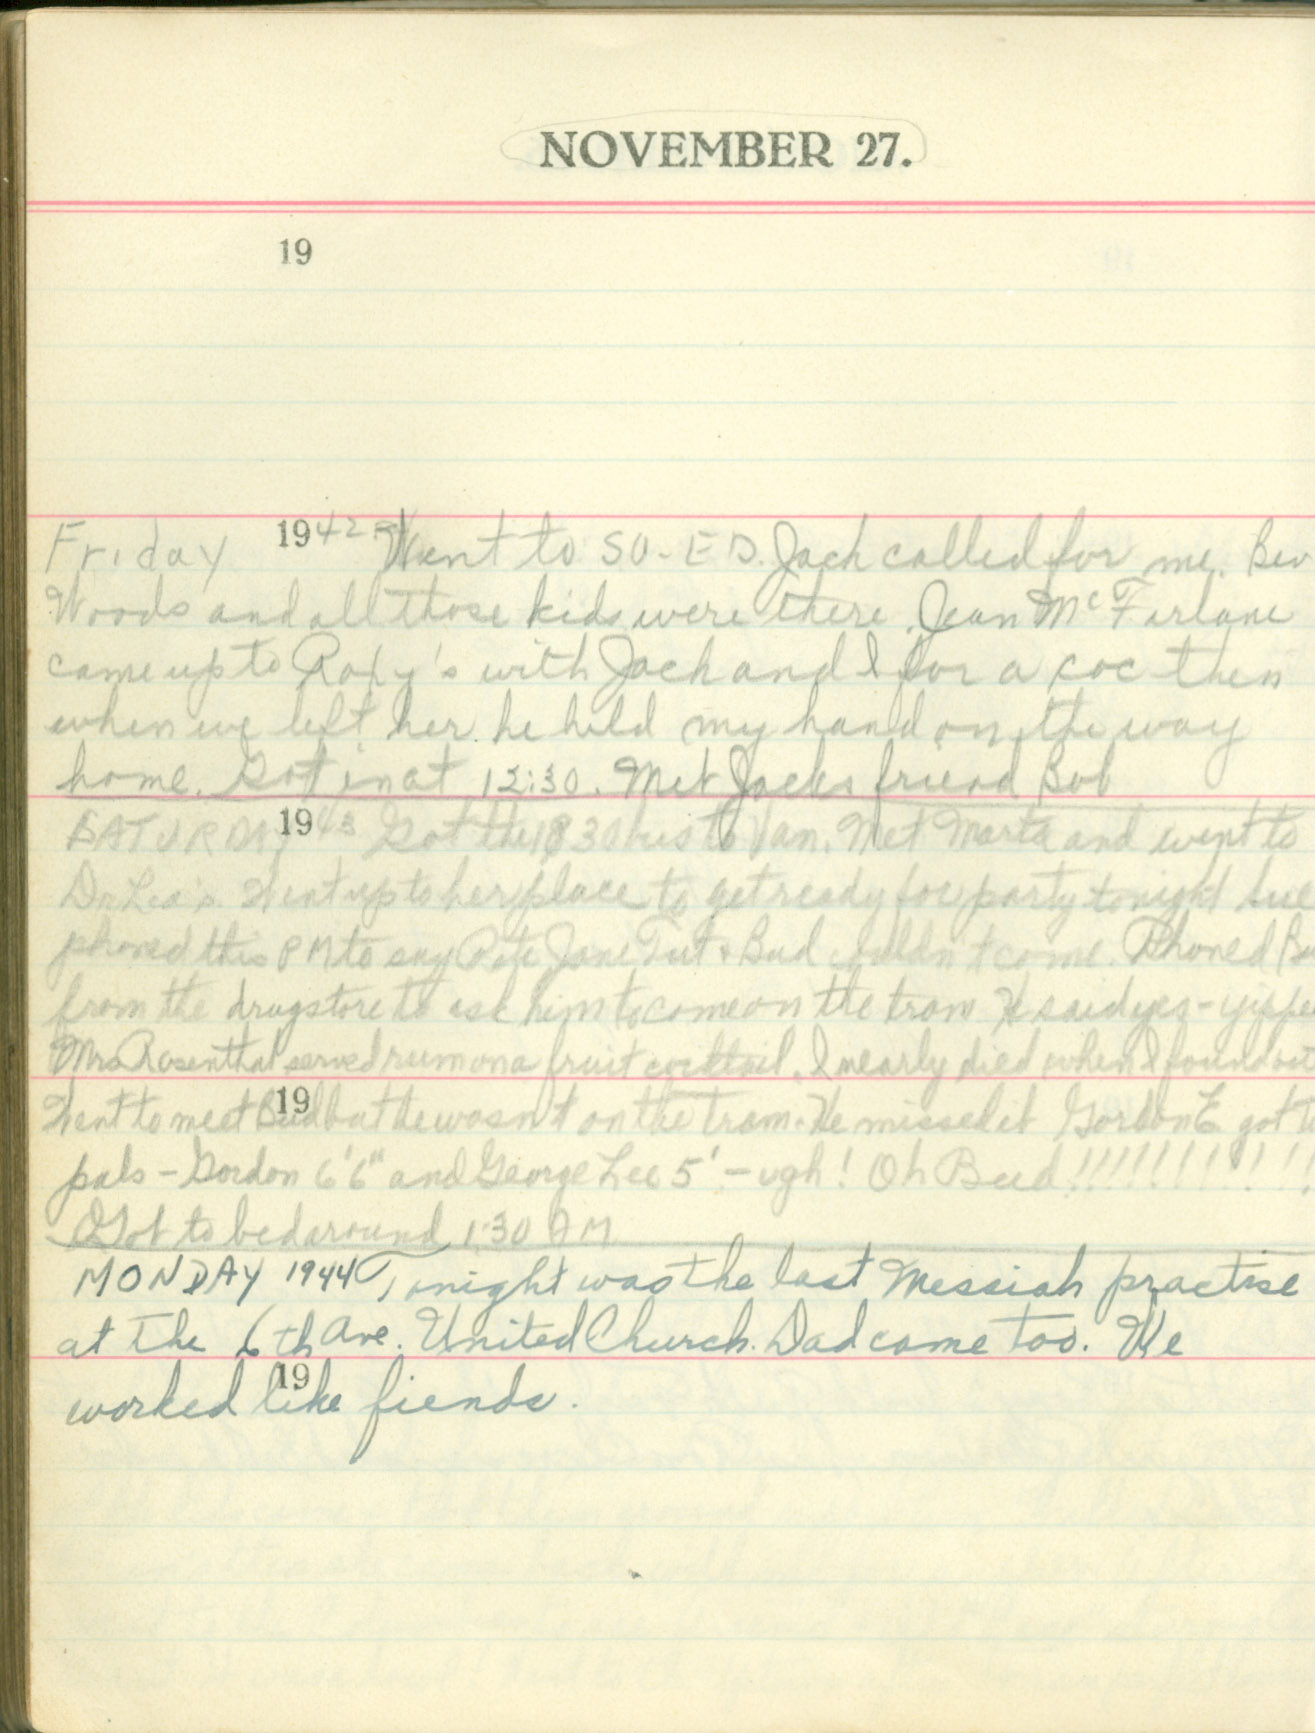 NOVEMBER 27.
19
Friday 1942 Went to SO-ED. Jack called for me. Bev
Woods and all those kids were there. Jean McFarlane
came up to Roxy's with Jack and I for a coc then
when we left her he held my hand on the way
home. Got in at 12:30. Met Jacks friend Bob
SATURDAY 1943 Got the 8 30 bus to Van. Met Marta and went to
Dr Lea's. Went up to her place to get ready for party tonight
phoned this PM to say Pete Jane Tut + Bud couldn't come. Phoned
from the drugstore to ask him to come on the tram He said yes -
Mrs Rosenthal served rum on a fruit cocktail. I nearly died when I found out
19
Went to meet Bud but he wasn't on the tram. He missed it Gordon E got
pals - Gordon 6'6" and George Lee 5' - ugh! Oh Bud!!!!!!!!!!!
Got to bed around 1:30 AM
MONDAY 1944 Tonight was the last Messiah practise
at the 6th Ave. United Church. Dad came too. We
19
worked like fiends.